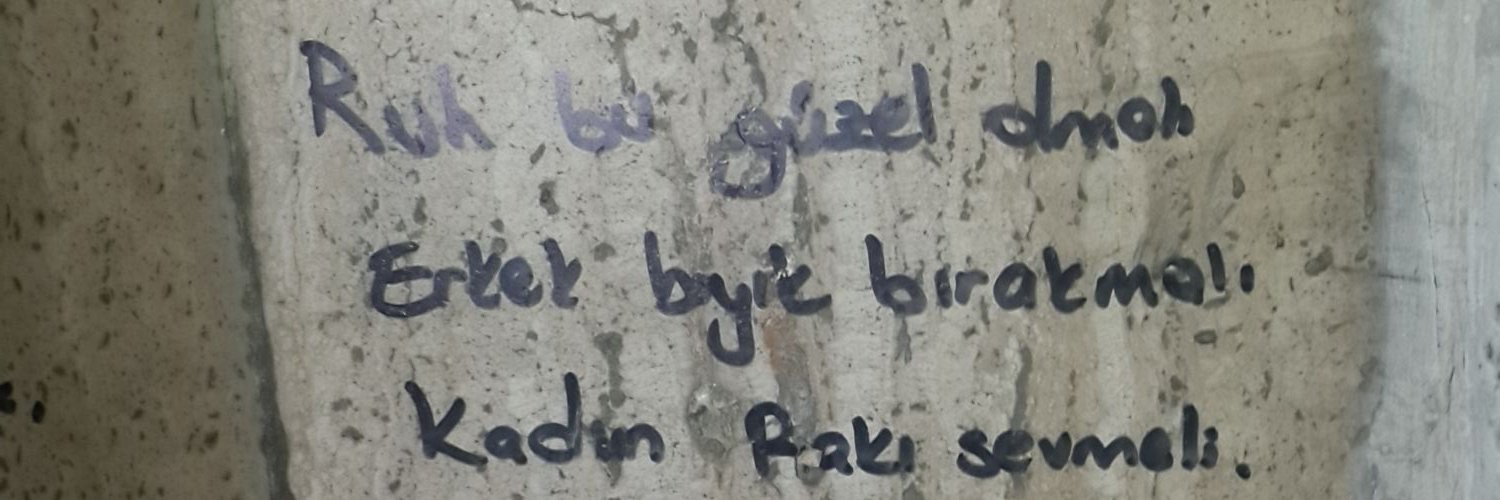 Ruh bu güzel olmalı
Erkek bıyık bırakmalı
Kadın Rakı sevmeli.